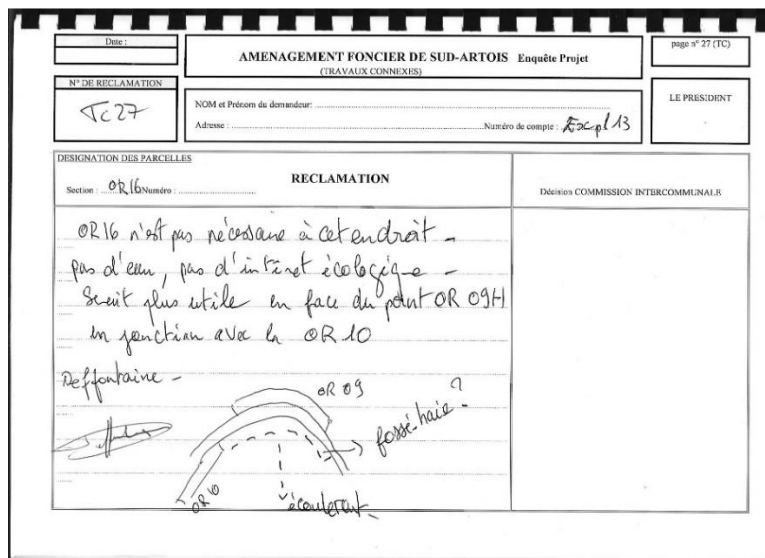 Date :
AMENAGEMENT FONCIER DE SUD-ARTOIS Enquête Projet
(TRAVAUX CONNEXES)
page n° 27 (TC)
N° DE RECLAMATION
TC27
NOM et Prénom du demandeur:
Adresse : Numéro de compte : Expl 13
LE PRESIDENT
DESIGNATION DES PARCELLES
Section : OR16 Numéro :
RECLAMATION
Décision COMMISSION INTERCOMMUNALE
OR16 n'est pas nécessaire à cet endroit -
pas d'eau, pas d'intéret écologique -
Serait plus utile en face du point OR 09H
en jonction avec la OR 10
Deffontaine -
OR 09
fossé-haie ?
OR 10
écoulement